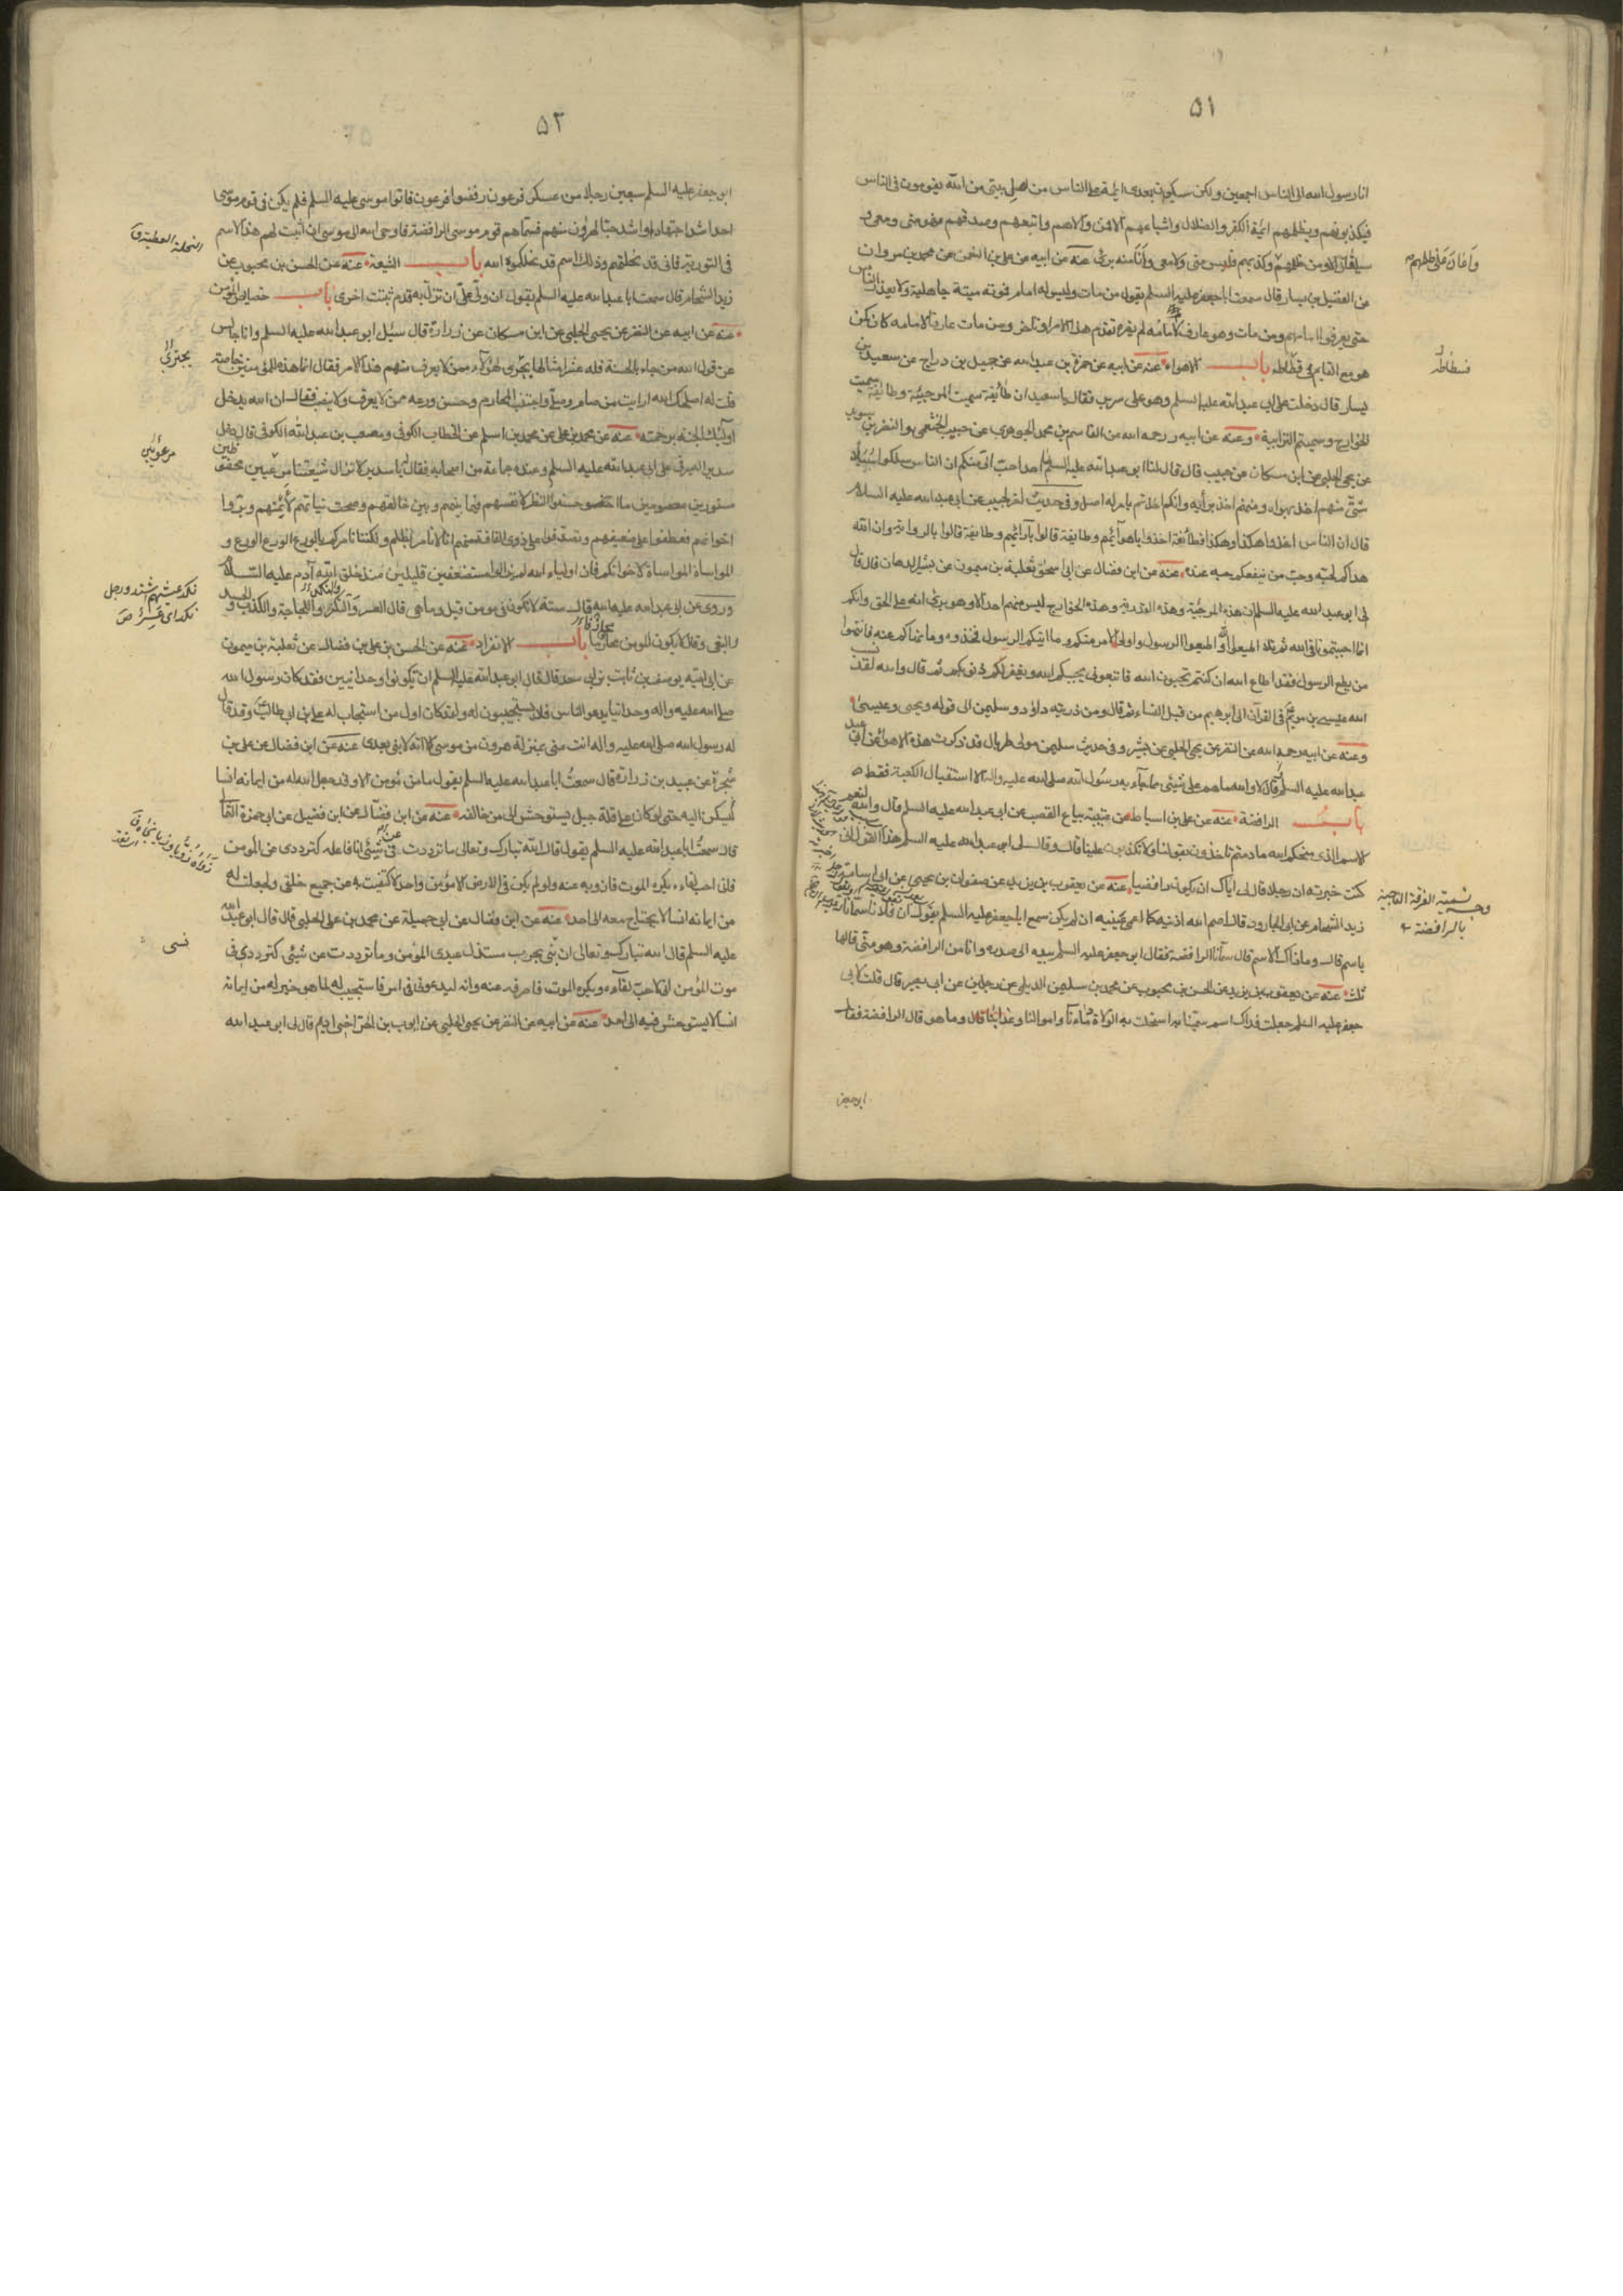 ٥١
انا رسول الله الى الناس اجمعين ولكن سيكون بعدى ايمة على الناس من اهل بيتى من الله يقومون فى الناس
فيكذبونهم ويظلمهم ائمة الكفر والضلال واشياعهم الا فمن والاهم واتبعهم وصدقهم فهو منى ومعى و
سيلقانى الا ومن ظلمهم وكذبهم فليس منى ولا معى وانا منه برئ عنه عن ابيه عن على بن النعمن عن محمد بن مروان
واعان على ظلمهم
عن الفضيل بن يسار قال سمعت ابا جعفر عليه السلم يقول من مات وليس له امام فموته ميتة جاهلية ولا يعذر الناس
حتى يعرفوا امامهم ومن مات وهو عارف لامامه لم يضره تقدم هذا الامر او تاخر ومن مات عارفا لامامه كان كمن
هو مع القايم فى فسطاطه باب الاهواء عنه عن ابيه عن حمزة بن عبد الله عن جميل بن دراج عن سعيد بن
فسطاطه
يسار قال دخلت على ابى عبد الله عليه السلم وهو على سرير فقال يا سعيد ان طائفة سميت المرجئة وطائفة سميت
الخوارج وسميتم الترابية وعنه عن ابيه رحمه الله عن القاسم بن محمد الجوهرى عن حبيب الخثعمى والنضر بن سويد
عن يحيى الحلبى عن ابن مسكان عن حبيب قال قال لنا ابو عبد الله عليه السلم ما احد احب الى منكم ان الناس سلكوا سبلا
شتى منهم اخذ بهواه ومنهم اخذ برأيه وانكم اخذتم بامر له اصل وفى حديث اخر لحبيب عن ابى عبد الله عليه السلام
قال ان الناس اخذوا هكذا وهكذا فطائفة اخذوا باهوائهم وطايفة قالوا بآرائهم وطايفة قالوا بالرواية وان الله
هداكم لحبه وحب من ينفعكم حبه عنده عنه عن ابن فضال عن ابى اسحق ثعلبة بن ميمون عن بشير الدهان قال قال
لى ابو عبد الله عليه السلم ان هذه المرجئة وهذه القدرية وهذه الخوارج ليس منهم احد الا وهو يرى انه على الحق وانكم
انما احببتمونا فى الله ثم تلا اطيعوا الله واطيعوا الرسول واولى الامر منكم وما آتيكم الرسول فخذوه وما نهاكم عنه فانتهوا
من يطع الرسول فقد اطاع الله ان كنتم تحبون الله فاتبعونى يحببكم الله ويغفر لكم ذنوبكم ثم قال والله لقد نسب
الله عيسى بن مريم فى القرآن الى ابرهيم من قبل النساء ثم قال ومن ذريته داود وسليمن الى قوله ويحيى وعيسى
وعنه عن ابيه رحمه الله عن النضر عن يحيى الحلبى عن بشير وفى حديث سليمن مولى طربال قد ذكرت هذه الاهواء عن ابى عبد
عبد الله عليه السلم قال لا والله ما هم على شيئى مما جاء به رسول الله صلى الله عليه واله الا استقبال الكعبة فقط
باب الرافضة عنه عن على بن اسباط عن عتيبة بياع القصب عن ابى عبد الله عليه السلم قال والله لنعم
الاسم الذى منحكم الله ما دمتم تاخذون بقولنا ولا تكذبون علينا قال وقال لى ابو عبد الله عليه السلم هذا القول انى
كنت خبرته ان رجلا قال لى اياك ان تكون رافضيا عنه عن يعقوب بن يزيد عن صفوان بن يحيى عن ابى اسامة
زيد الشحام عن ابى الجارود قال اصم الله اذنيه كما اعمى عينيه ان لم يكن سمع ابا جعفر عليه السلم يقول ان فلانا سمانا
وجه تسمية الفرقة الناجية
بالرافضة
باسم قال وما ذاك الاسم قال سمانا الرافضة فقال ابو جعفر عليه السلم بيده الى صدره وانا من الرافضة وهو منى قالها
ثلثا عنه عن يعقوب بن يزيد عن الحسن بن محبوب عن محمد بن سليمن الديلمى عن رجلين عن ابى بصير قال قلت لابى
جعفر عليه السلم جعلت فداك اسم سمينا به استحلت به الولاة دماءنا واموالنا وعذابنا قال وما هو قال الرافضة فقال
ابو جعفر
٥٢
ابو جعفر عليه السلم سبعين رجلا من عسكر فرعون رفضوا فرعون فاتوا موسى عليه السلم فلم يكن فى قوم موسى
احد اشد اجتهادا واشد حبا لهرون منهم فسماهم قوم موسى الرافضة فاوحى الله الى موسى ان اثبت لهم هذا الاسم
النحلة العطية ق
فى التورية فانى قد نحلتهم وذلك اسم قد نحلكموه الله باب الشيعة عنه عن الحسن بن محبوب عن
زيد الشحام قال سمعت ابا عبد الله عليه السلم يقول ان ولى على ان تزل به قدم تثبت اخرى باب خصايص المؤمن
عنه عن ابيه عن النضر عن يحيى الحلبى عن ابن مسكان عن زرارة قال سئل ابو عبد الله عليه السلم وانا جالس
عن قول الله من جاء بالحسنة فله عشر امثالها يجرى لهؤلاء ممن لا يعرف منهم هذا الامر فقال انما هذه للمؤمنين خاصة
قلت له اصلحك الله ارايت من صام وصلى واجتنب المحارم وحسن ورعه ممن لا يعرف ولا ينصب فقال ان الله يدخل
اولئك الجنة برحمته عنه عن محمد بن على عن محمد بن اسلم عن الخطاب الكوفى ومصعب بن عبد الله الكوفى قال دخل
سدير الصيرفى على ابى عبد الله عليه السلم وعنده جماعة من اصحابه فقال يا سدير لا تزال شيعتنا مرعيين محفوظين
مستورين معصومين ما احسنوا النظر لانفسهم فيما بينهم وبين خالقهم وصحت نياتهم لأئمتهم وبروا
اخوانهم فعطفوا على ضعيفهم وتصدقوا على ذوى الفاقة منهم انا لا نامر بظلم ولكنا نامركم بالورع الورع الورع و
المواساة المواساة لاخوانكم فان اولياء الله لم يزالوا مستضعفين قليلين منذ خلق الله آدم عليه السلام
نكد عيشهم اشتد ورجل
نكد اى عسر ص
وروى عن ابى عبد الله عليه السلم قال ستة لا تكون فى مومن قيل وما هى قال العسر والنكد واللجاجة والكذب والحسد و
البغى وقال لا يكون المومن محارفا باب الانفراد عنه عن الحسن بن على بن فضال عن ثعلبة بن ميمون
عن ابى امية يوسف بن ثابت بن ابى سعد قال قال ابو عبد الله عليه السلم ان تكونوا وحدانيين فقد كان رسول الله
صلى الله عليه واله وحدانيا يدعو الناس فلا يستجيبون له ولقد كان اول من استجاب له على بن ابى طالب وقد قال
له رسول الله صلى الله عليه واله انت منى بمنزلة هرون من موسى الا انه لا نبى بعدى عنه عن ابن فضال عن على بن
شجرة عن عبيد بن زرارة قال سمعت ابا عبد الله عليه السلم يقول ما من مؤمن الا وقد جعل الله له من ايمانه انسا
يسكن اليه حتى لو كان على قلة جبل يستوحش الى من خالفه عنه عن ابن فضال عن ابن فضيل عن ابى حمزة الثمالى
قال سمعت ابا عبد الله عليه السلم يقول قال الله تبارك وتعالى ما ترددت عن شيئى انا فاعله كترددى عن المومن
فانى احب لقاءه ويكره الموت فازويه عنه ولو لم يكن فى الارض الا مؤمن واحد لاكتفيت به عن جميع خلقى ولجعلت له
من ايمانه انسا لا يحتاج معه الى احد عنه عن ابن فضال عن ابى جميلة عن محمد بن على الحلبى قال قال ابو عبد الله
عليه السلم قال الله تبارك وتعالى ليأذن بحرب مستذل عبدى المؤمن وما ترددت عن شيئى كترددى فى
موت المؤمن انى لاحب لقاءه ويكره الموت فاصرفه عنه وانه ليدعونى فى امر فاستجيب له لما هو خير له من ايمانه
انسا لا يستوحش فيه الى احد عنه عن ابيه عن النضر عن يحيى الحلبى عن ايوب بن الحر اخى اديم قال لى ابو عبد الله